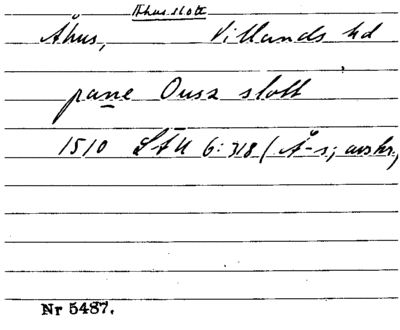 Åhus slott
Åhus, Villands hd
pane Ousz slott
1510 LÄU 6:318 (Å-s; avskr.)
Nr 5487.